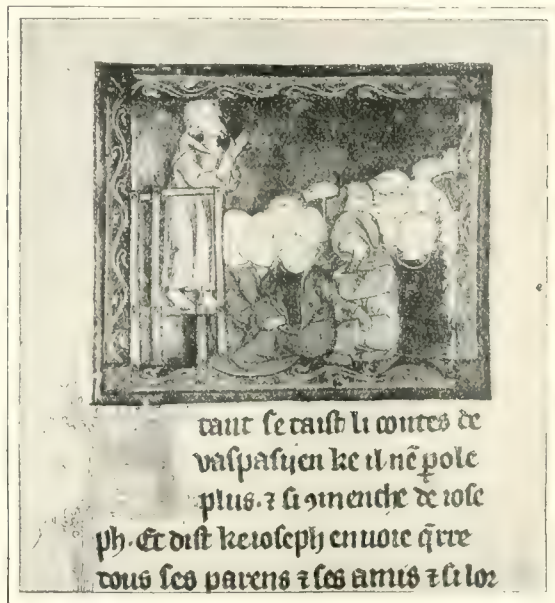 tant se taist li contes de
vaspasyen ke il nē ꝑole
plus. ⁊ si ꝯmenche de iose
ph. Et dist ke ioseph enuoie q̄rre
tous ses parens ⁊ ses amis ⁊ si lor